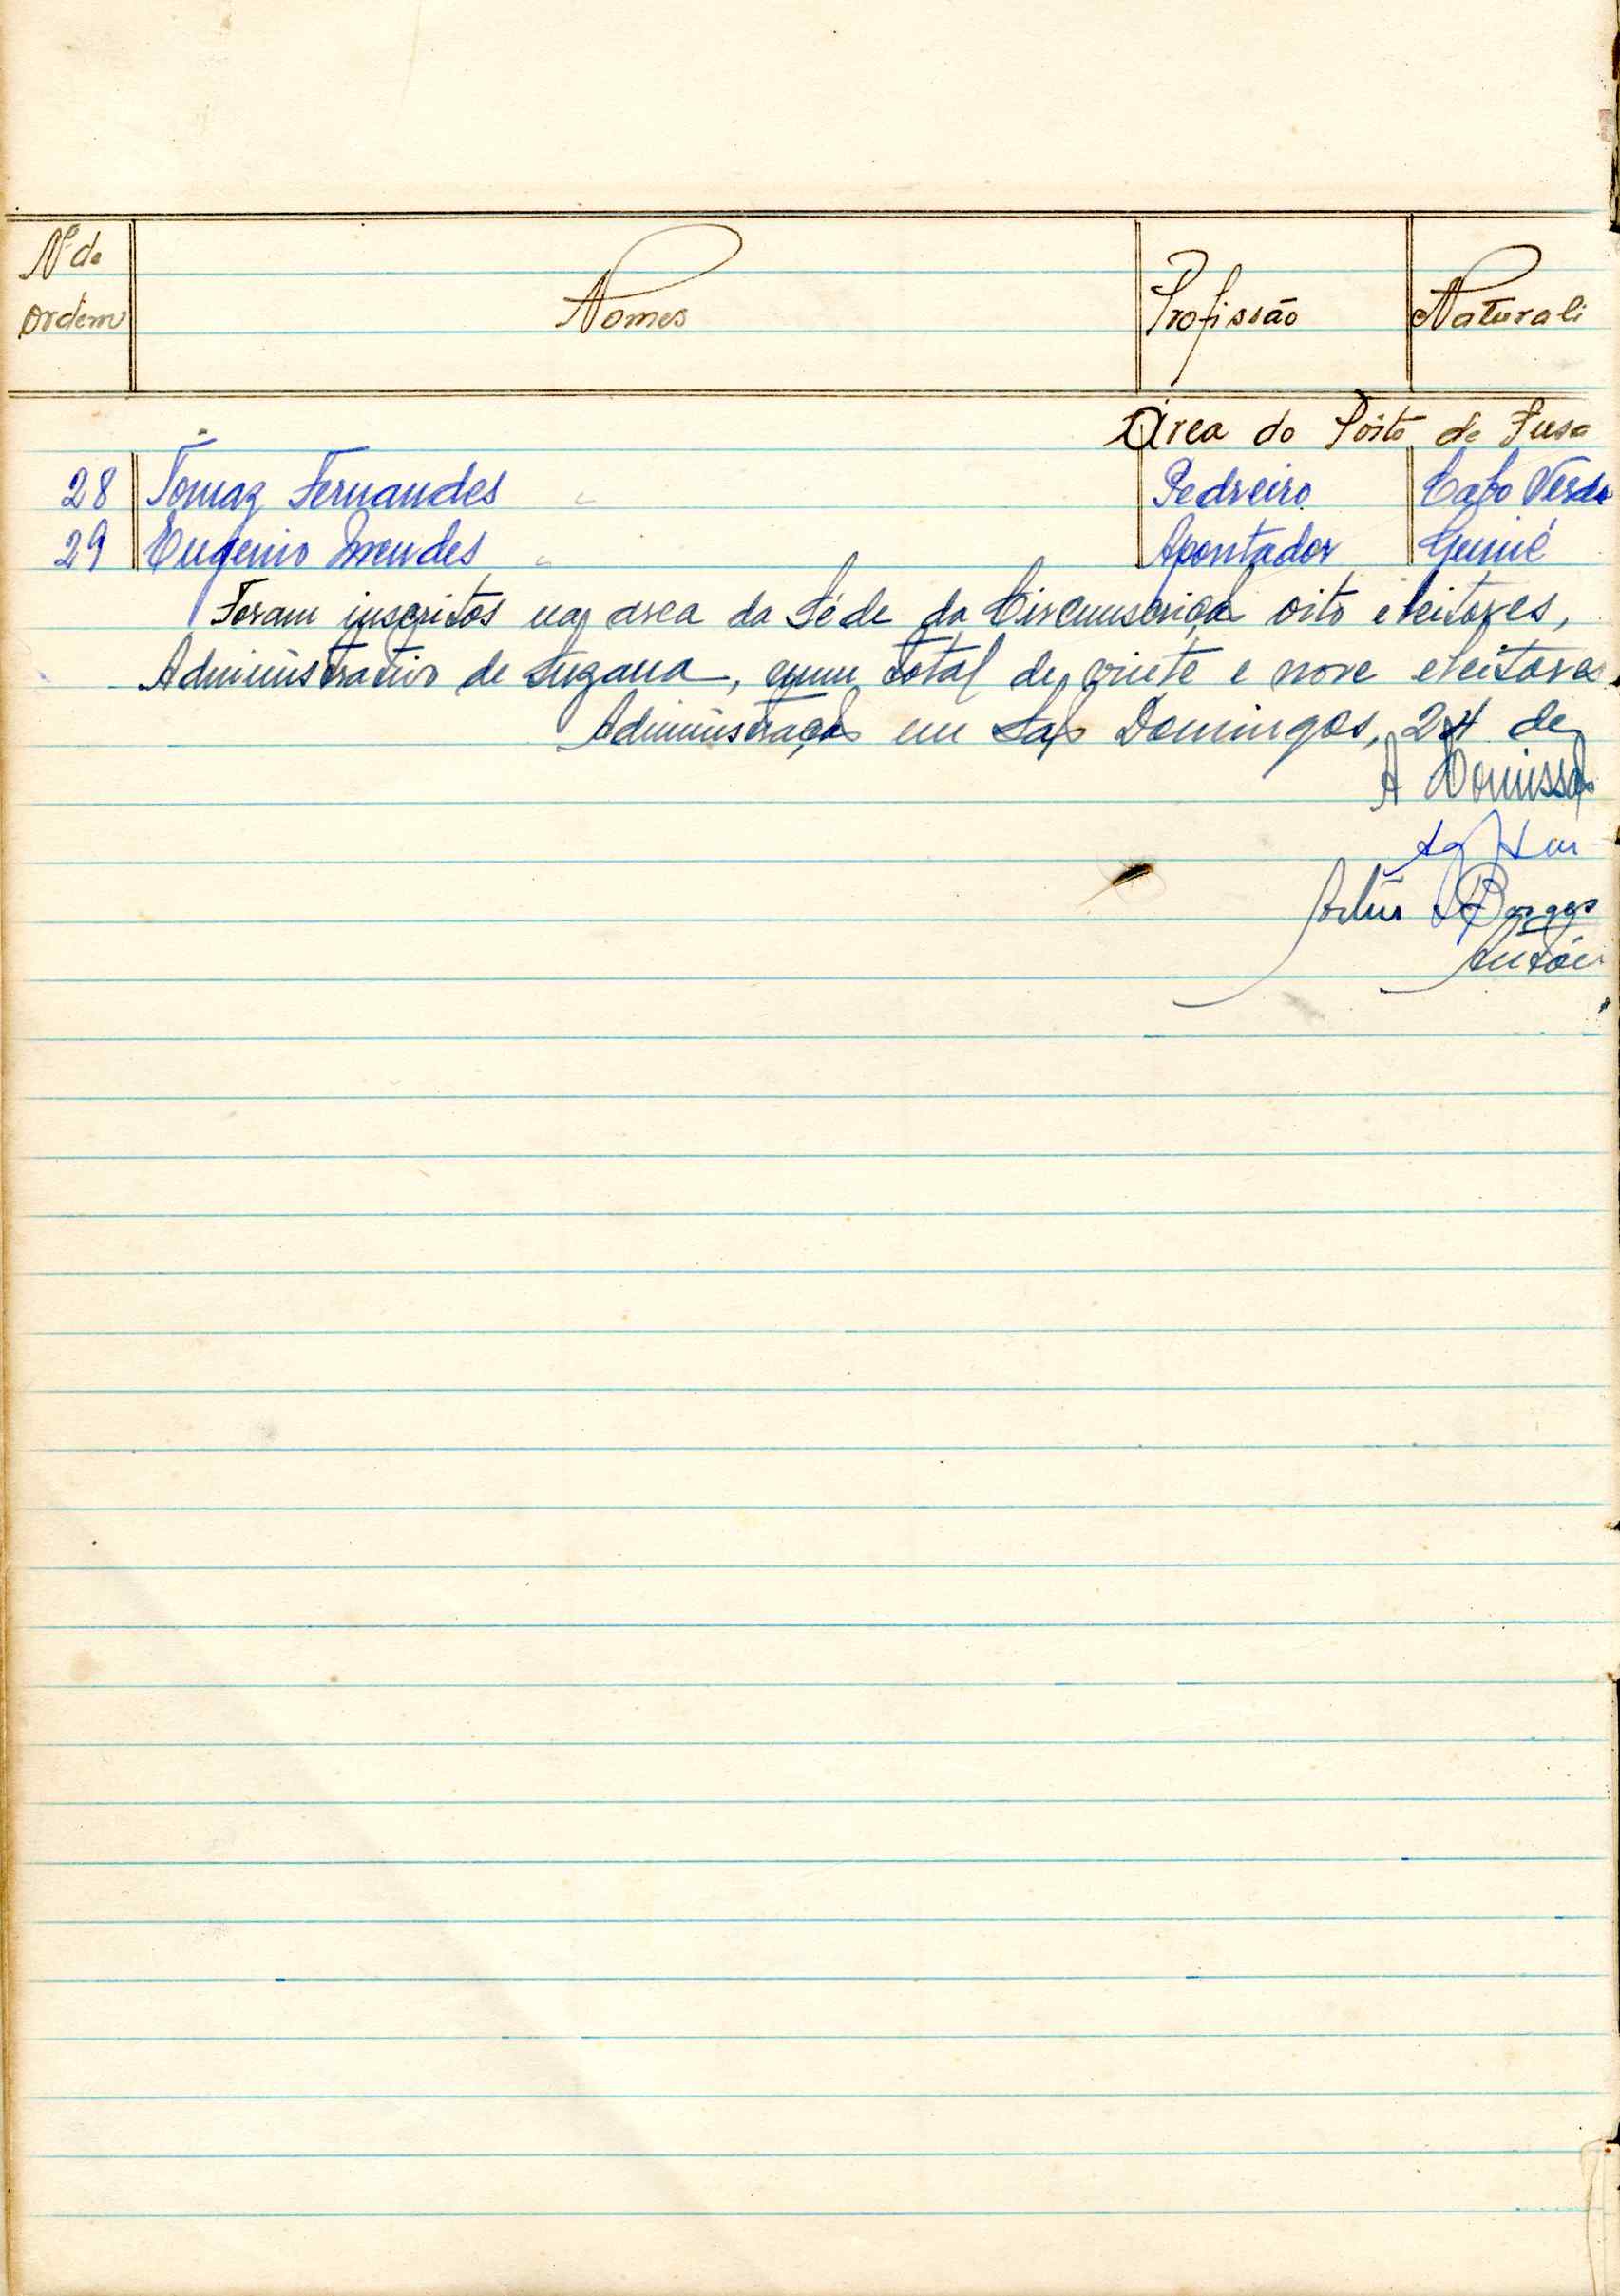 Nº de
ordem
Nomes
Profissão
Naturali
Área do Pôsto de Susa
28 Tomaz Fernandes Pedreiro Cabo Verde
29 Eugenio Mendes Apontador Guiné
Foram inscritos na area da Séde da Circunscrição oito eleitores,
Administrativo de Suzana, num total de vinte e nove eleitores.
Administração em São Domingos, 24 de
A Comissão
Artur Borges
Antóni